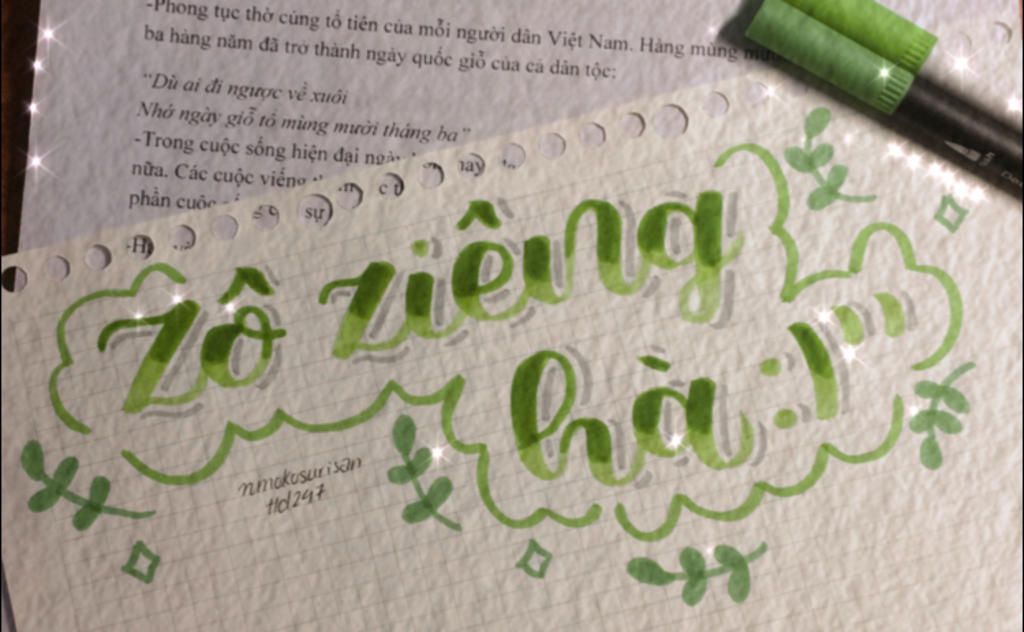 -Phong tục thờ cúng tổ tiên của mỗi người dân Việt Nam. Hàng mùng
ba hàng năm đã trở thành ngày quốc giỗ của cả dân tộc:
“Dù ai đi ngược về xuôi
Nhớ ngày giỗ tổ mùng mười tháng ba”
-Trong cuộc sống hiện đại ngày nay
nữa. Các cuộc viếng
phần cuộc
sự)
Zô ziêng
hà :)"
nmokosurisan